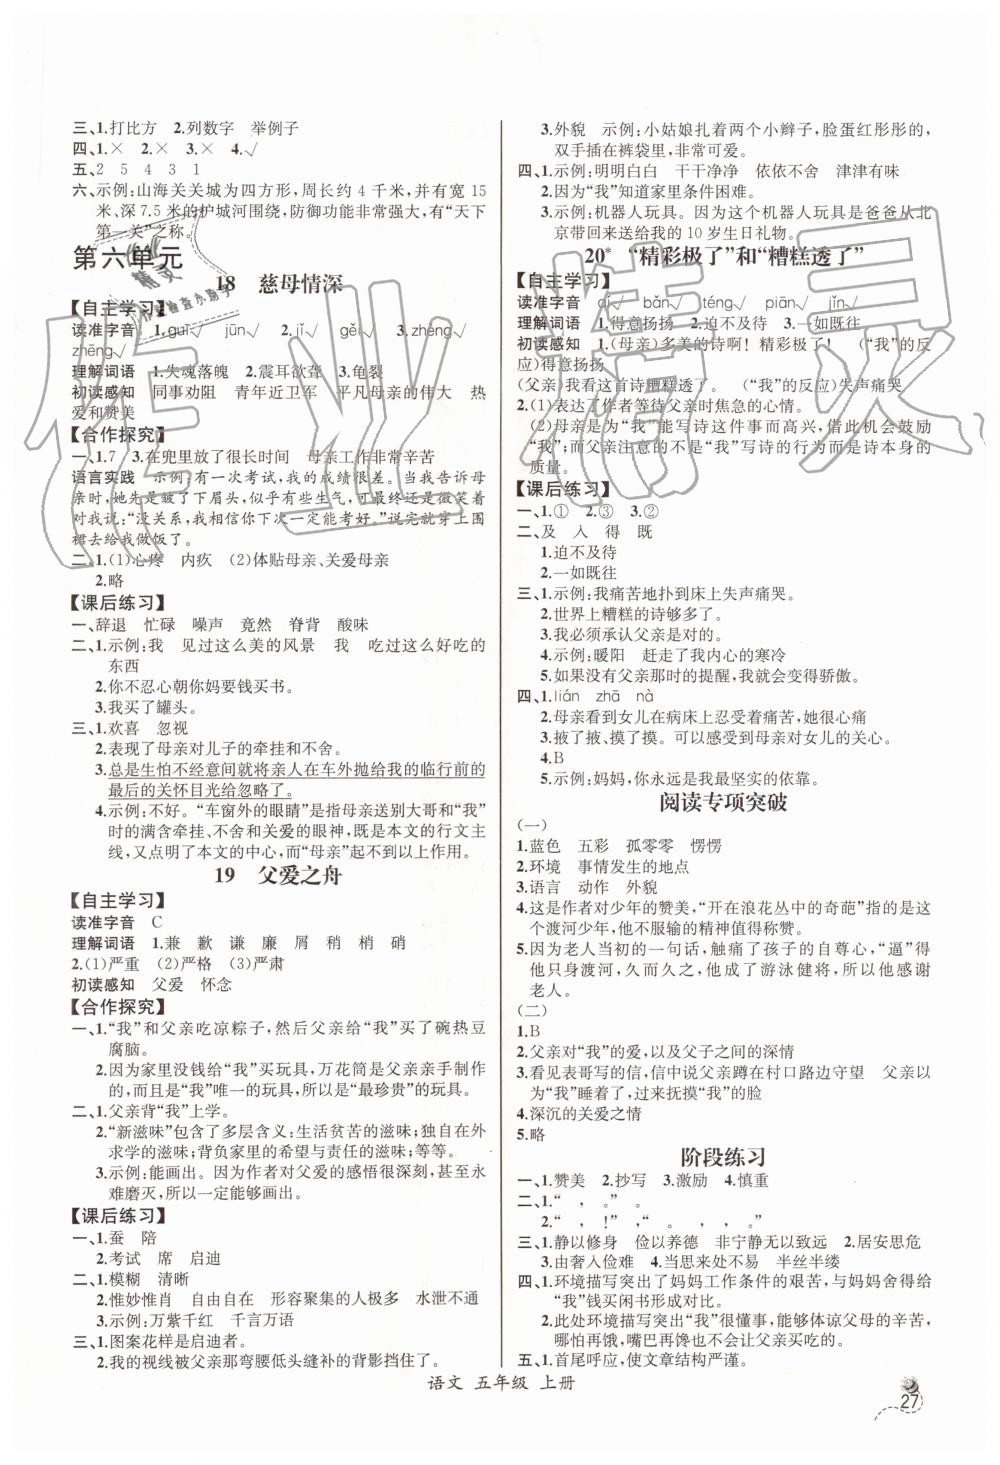 三、1.打比方　2.列数字　举例子
四、1.×　2.×　3.×　4.√
五、2　5　4　3　1
六、示例:山海关关城为四方形,周长约4千米,并有宽15
米、深7.5米的护城河围绕,防御功能非常强大,有“天下
第一关”之称。
第六单元
18　慈母情深
【自主学习】
读准字音　1.guī√　jūn√　2.jǐ√　gěi√　3.zhéng√
zhēng√
理解词语　1.失魂落魄　2.震耳欲聋　3.龟裂
初读感知　同事劝阻　青年近卫军　平凡母亲的伟大　热
爱和赞美
【合作探究】
一、1.7　3.在兜里放了很长时间　母亲工作非常辛苦
语言实践　示例:有一次考试,我的成绩很差。当我告诉母
亲时,她先是皱了下眉头,似乎有些生气,可最终还是微笑着
对我说:“没关系,我相信你下次一定能考好。”说完就穿上围
裙去给我做饭了。
二、1.(1)心疼　内疚　(2)体贴母亲、关爱母亲
2.略
【课后练习】
一、辞退　忙碌　噪声　竟然　脊背　酸味
二、1.示例:我　见过这么美的风景　我　吃过这么好吃的
东西
2.你不忍心朝你妈要钱买书。
3.我买了罐头。
三、1.欢喜　忽视
2.表现了母亲对儿子的牵挂和不舍。
3.总是生怕不经意间就将亲人在车外抛给我的临行前的
最后的关怀目光给忽略了。
4.示例:不好。“车窗外的眼睛”是指母亲送别大哥和“我”
时的满含牵挂、不舍和关爱的眼神,既是本文的行文主
线,又点明了本文的中心,而“母亲”起不到以上作用。
19　父爱之舟
【自主学习】
读准字音　C
理解词语　1.兼　歉　谦　廉　屑　稍　梢　硝
2.(1)严重　(2)严格　(3)严肃
初读感知　父爱　怀念
【合作探究】
一、1.“我”和父亲吃凉粽子,然后父亲给“我”买了碗热豆
腐脑。
2.因为家里没钱给“我”买玩具,万花筒是父亲亲手制作
的,而且是“我”唯一的玩具,所以是“最珍贵”的玩具。
二、1.父亲背“我”上学。
2.“新滋味”包含了多层含义:生活贫苦的滋味;独自在外
求学的滋味;背负家里的希望与责任的滋味;等等。
3.示例:能画出。因为作者对父爱的感悟很深刻,甚至永
难磨灭,所以一定能够画出。
【课后练习】
一、1.蚕　陪
2.考试　席　启迪
二、1.模糊　清晰
2.惟妙惟肖　自由自在　形容聚集的人极多　水泄不通
3.示例:万紫千红　千言万语
三、1.图案花样是启迪者。
2.我的视线被父亲那弯腰低头缝补的背影挡住了。
3.外貌　示例:小姑娘扎着两个小辫子,脸蛋红彤彤的,
双手插在裤袋里,非常可爱。
四、1.示例:明明白白　干干净净　依依不舍　津津有味
2.因为“我”知道家里条件困难。
3.示例:机器人玩具。因为这个机器人玩具是爸爸从北
京带回来送给我的10岁生日礼物。
20*　“精彩极了”和“糟糕透了”
【自主学习】
读准字音　qì√　bǎn√　téng√　piān√　jǐn√
理解词语　1.得意扬扬　2.迫不及待　3.一如既往
初读感知　1.(母亲)多美的诗啊!精彩极了!　(“我”的反
应)得意扬扬
(父亲)我看这首诗糟糕透了。　(“我”的反应)失声痛哭
2.(1)表达了作者等待父亲时焦急的心情。
(2)母亲是为“我”能写诗这件事而高兴,借此机会鼓励
“我”;而父亲注意的不是“我”写诗的行为而是诗本身的
质量。
【课后练习】
一、1.①　2.③　3.②
二、及　人　得　既
1.迫不及待
2.一如既往
三、1.示例:我痛苦地扑到床上失声痛哭。
2.世界上糟糕的诗够多了。
3.我必须承认父亲是对的。
4.示例:暖阳　赶走了我内心的寒冷
5.如果没有父亲那时的提醒,我就会变得骄傲。
四、1.lián　zhā　nà
2.母亲看到女儿在病床上忍受着痛苦,她很心痛
3.掖了掖、摸了摸。可以看出母亲对女儿的关心。
4.B
5.示例:妈妈,你永远是我最坚实的依靠。
阅读专项突破
(一)
1.蓝色　五彩　孤零零　愣愣
2.环境　事情发生的地点
3.语言　动作　外貌
4.这是作者对少年的赞美,“开在浪花丛中的奇葩”指的是这
个渡河少年,他不服输的精神值得称赞。
5.因为老人当初的一句话,触痛了孩子的自尊心,“逼”得
他只身渡河,久而久之,他成了游泳健将,所以他感谢
老人。
(二)
1.B
2.父亲对“我”的爱,以及父子之间的深情
3.看见表哥写的信,信中说父亲蹲在村口路边守望　父亲以
为“我”睡着了,过来抚摸“我”的脸
4.深沉的关爱之情
5.略
阶段练习
一、1.赞美　2.抄写　3.激励　4.慎重
二、1.“　,　。”　。
2.“　,　!”　,“　。　,　,　。”
三、1.静以修身　俭以养德　非宁静无以致远　2.居安思危
3.由奢入俭难　4.当思来处不易　半丝半缕
四、1.环境描写突出了妈妈工作条件的艰苦,与妈妈舍得给
“我”钱买闲书形成对比。
2.此处环境描写突出了“我”很懂事,能够体谅父母的辛苦,
哪怕再饿,嘴巴再馋也不会让父亲买吃的。
五、1.首尾呼应,使文章结构严谨。
语文　五年级　上册
27
作业精灵